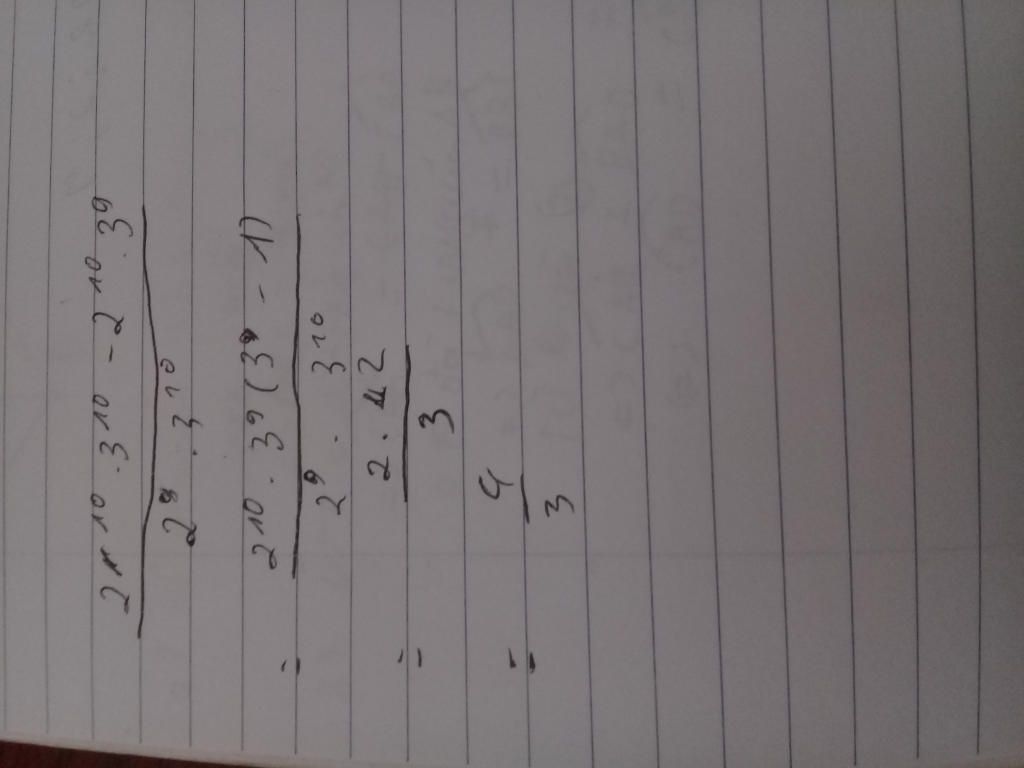 2^10 . 3^10 - 2^10 . 3^9
2^9 . 3^10
= 2^10 . 3^9 (3 - 1)
2^9 . 3^10
= 2 . 2
3
= 4
3